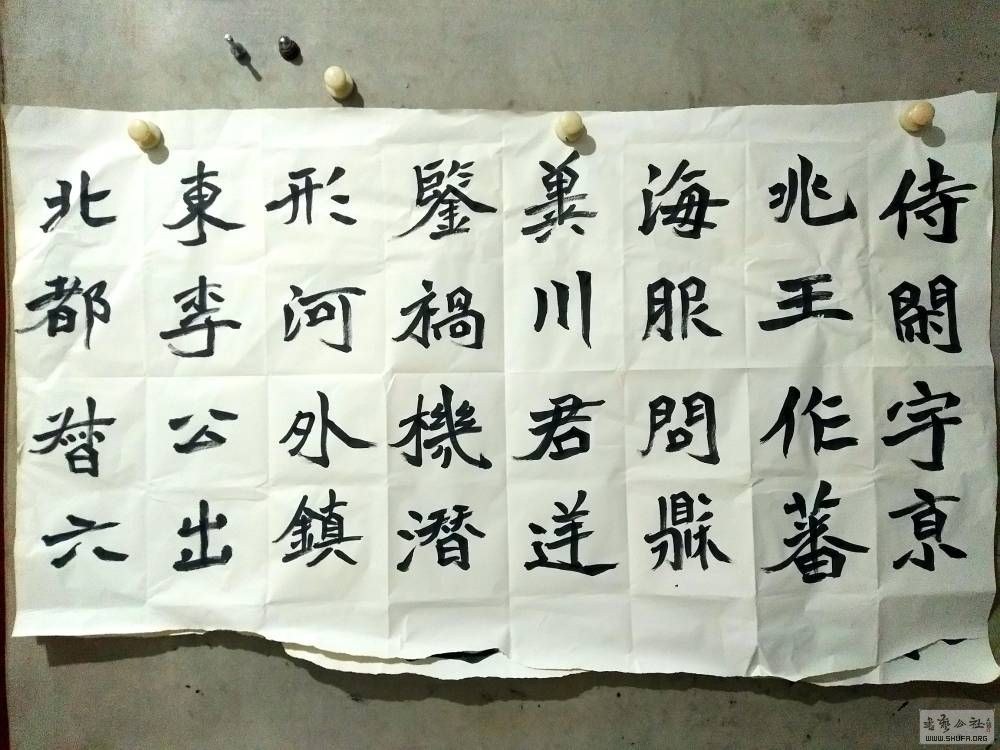 侍閑宇亰
兆王作蕃
海服問鼎
兾川君逆
鑒禍機潛
形河外鎮
東李公出
北都督六
书艺公社
WWW.SHUFA.ORG